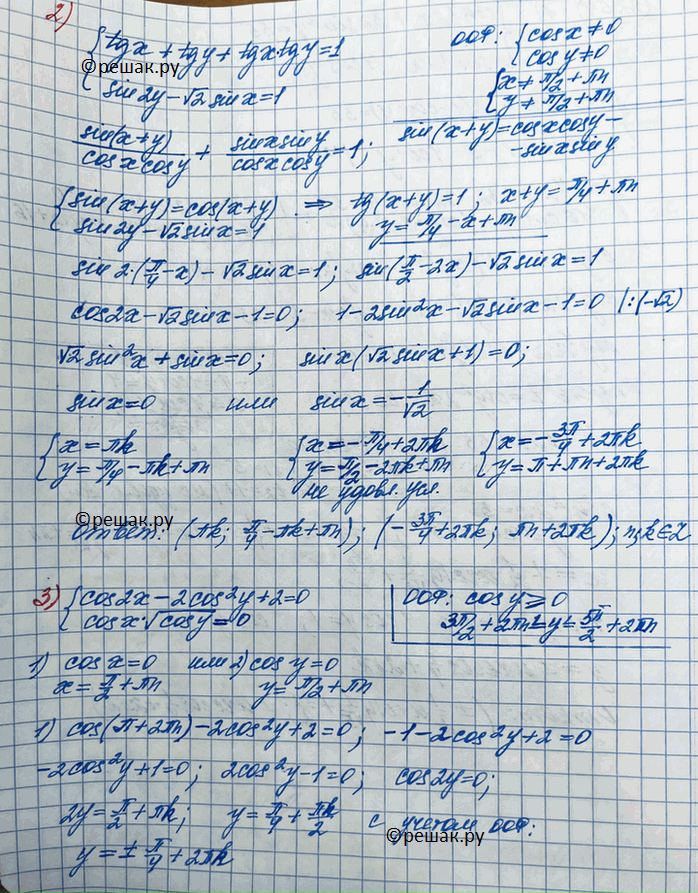 2) { tgx + tgy + tgx·tgy = 1
{ sin2y - √2 sinx = 1
ООФ: { cosx ≠ 0
{ cosy ≠ 0
{ x ≠ π/2 + πn
{ y ≠ π/2 + πn
©решак.ру
sin(x+y)/(cosx cosy) + (sinx siny)/(cosx cosy) = 1;
sin(x+y) = cosx cosy -
- sinx siny
{ sin(x+y) = cos(x+y) ⇒ tg(x+y) = 1; x+y = π/4 + πn
{ sin2y - √2 sinx = 1 y = π/4 - x + πn
sin2·(π/4 - x) - √2 sinx = 1; sin(π/2 - 2x) - √2 sinx = 1
cos2x - √2 sinx - 1 = 0; 1 - 2sin²x - √2 sinx - 1 = 0 |:(-√2)
√2 sin²x + sinx = 0; sinx(√2 sinx + 1) = 0;
sinx = 0 или sinx = -1/√2
{ x = πk { x = -π/4 + 2πk { x = -3π/4 + 2πk
{ y = π/4 - πk + πn { y = π/2 - 2πk + πn { y = π + πn + 2πk
не удовл. усл.
©решак.ру
Ответ: (πk; π/4 - πk + πn); (-3π/4 + 2πk; πn + 2πk); n,k ∈ Z
3) { cos2x - 2cos²y + 2 = 0
{ cosx·√cosy = 0
ООФ: cosy ≥ 0
3π/2 + 2πn ≤ y ≤ 5π/2 + 2πn
1) cosx = 0 или 2) cosy = 0
x = π/2 + πn y = π/2 + πn
1) cos(π + 2πn) - 2cos²y + 2 = 0; -1 - 2cos²y + 2 = 0
-2cos²y + 1 = 0; 2cos²y - 1 = 0; cos2y = 0;
2y = π/2 + πk; y = π/4 + πk/2 с учетом ООФ:
©решак.ру
y = ± π/4 + 2πk